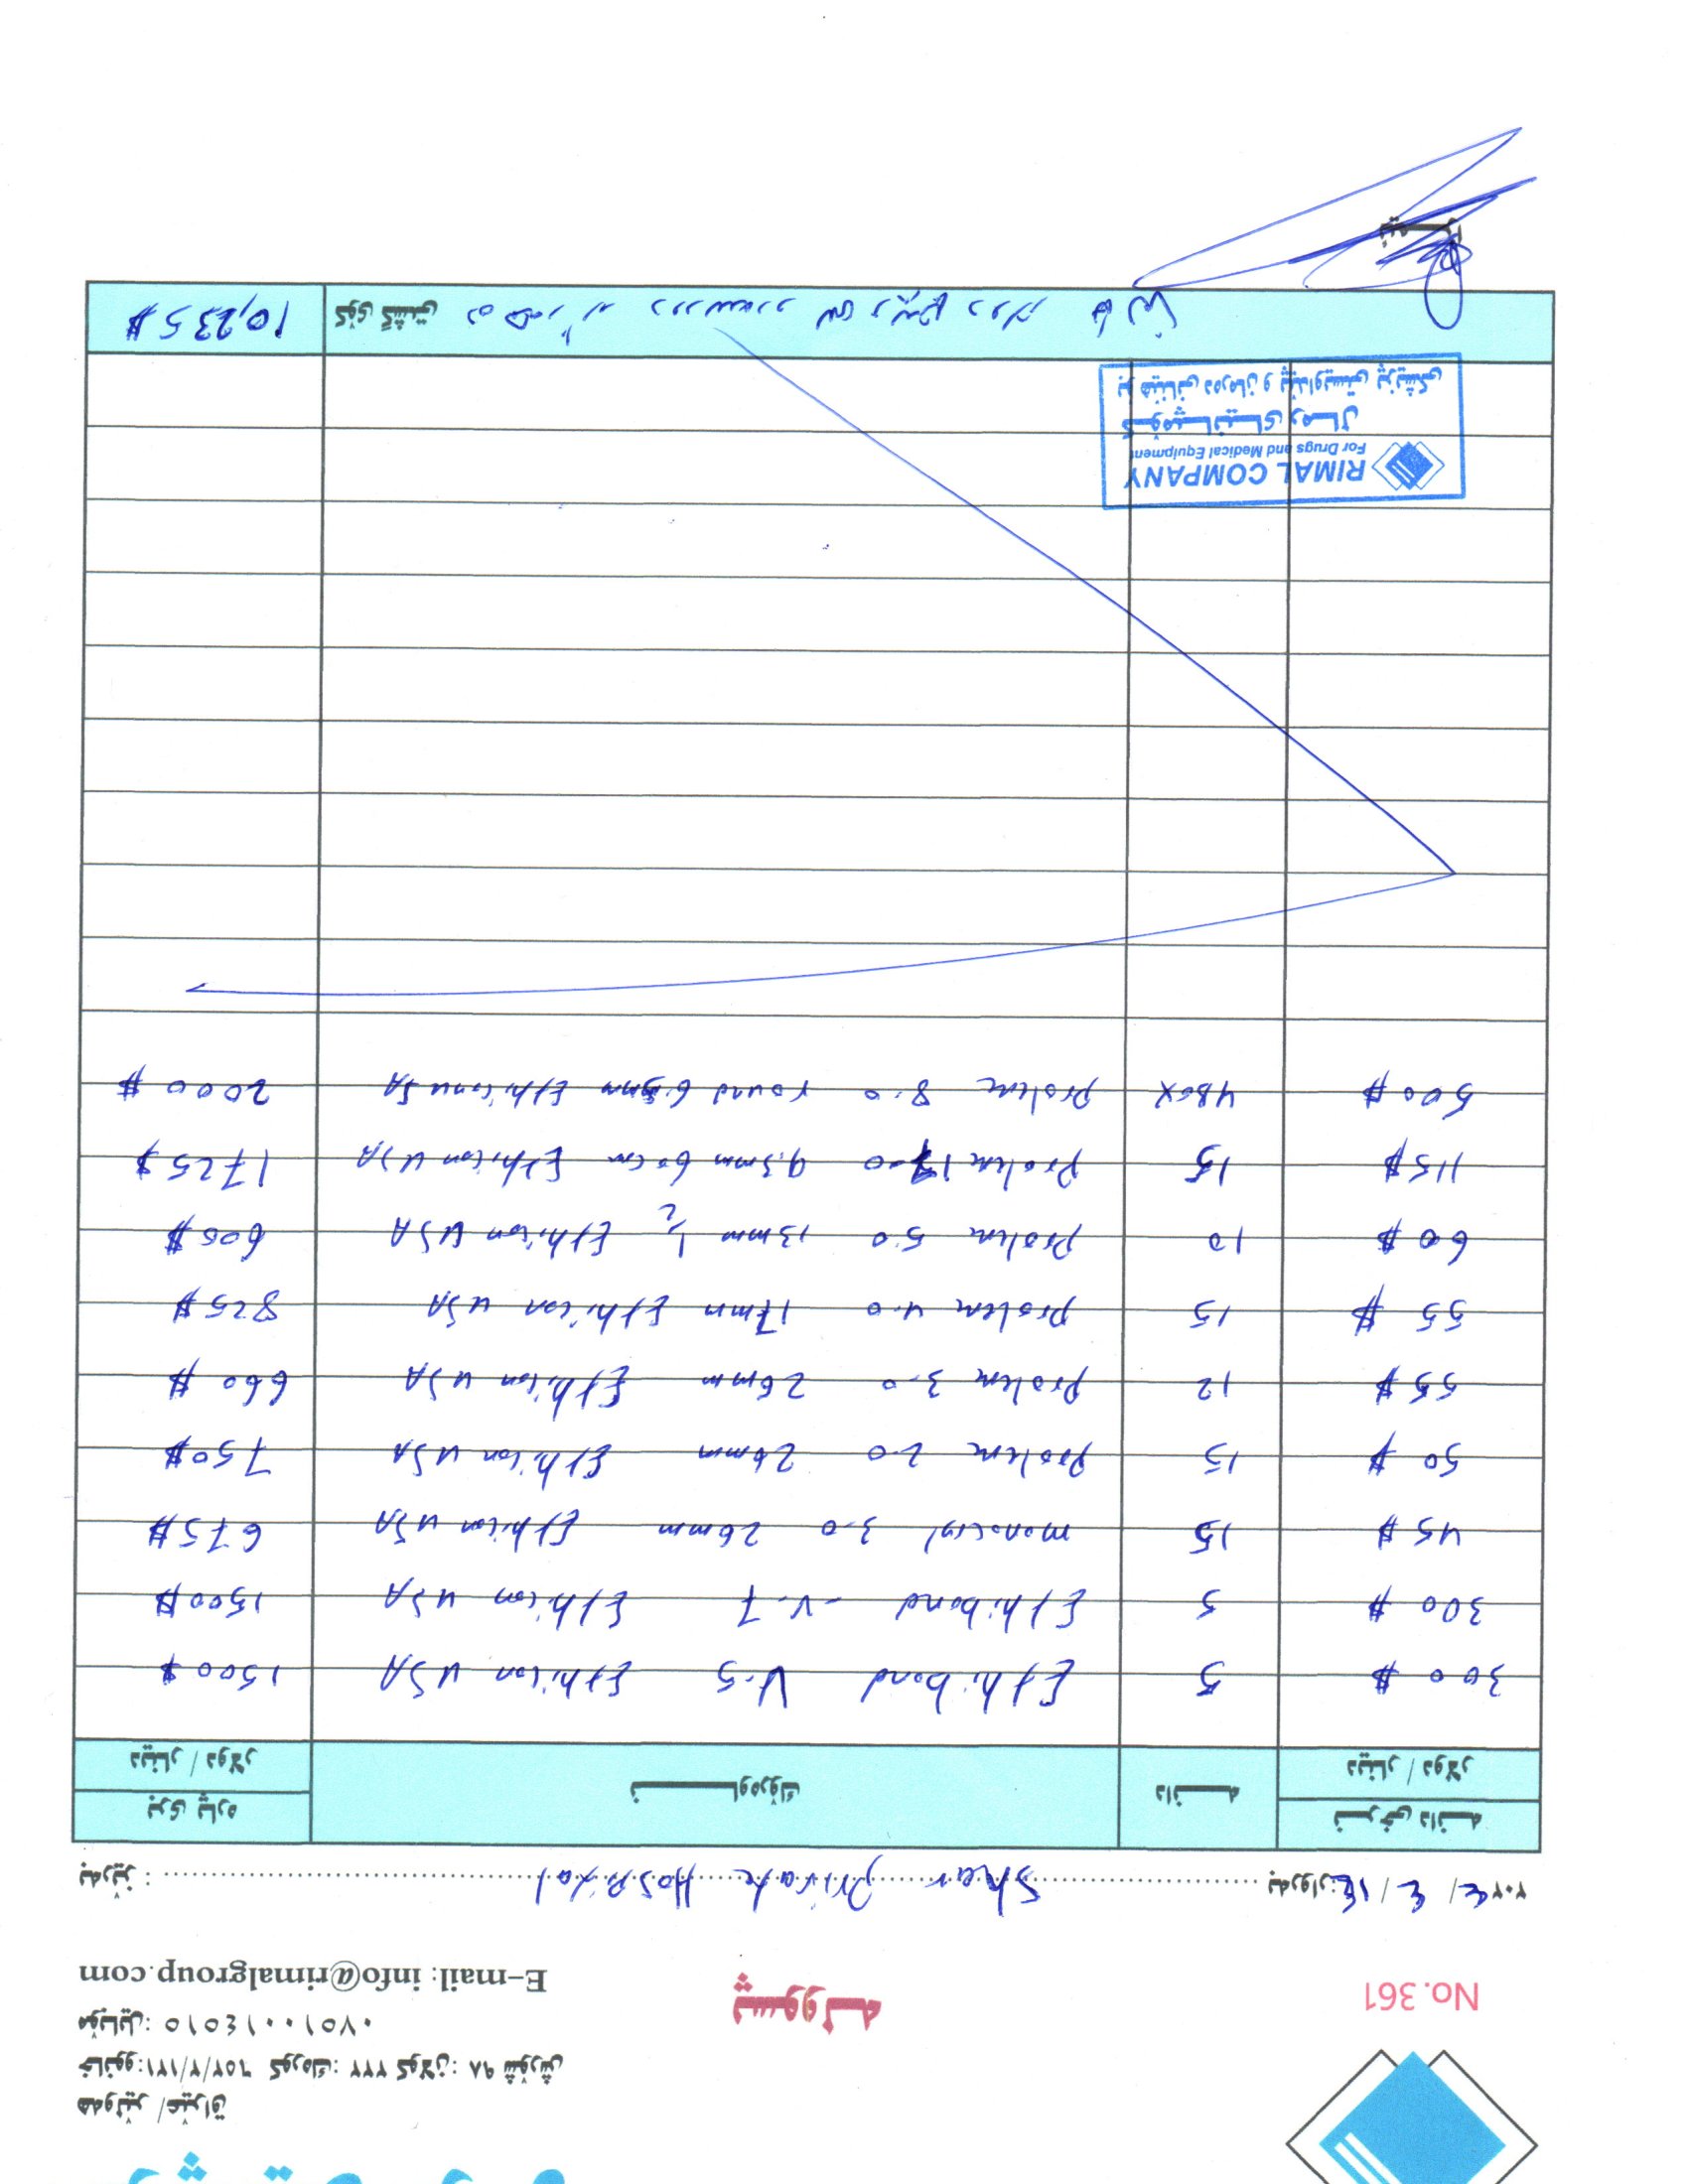 هەولێر /عێراق
خانوو:٦٥٢/٢/١٢١ كورەك: ٢٢٢ كولان: ٩٨ شۆرش
مۆبایل: ٠٧٥١٠٠١٤٥١٥
E-mail: info@rimalgroup.com
No. 361
پسوولە
بەرێز : Shar Private Hospital بەروار: ١٤/ ٤ /٢٠٢٤
بری پارە ناوەرۆك دانە نرخی دانە
دینار / دولار دینار / دولار
300 $ 5 Ethibond V-5 Ethicon USA 1500 $
300 $ 5 Ethibond -V-7 Ethicon USA 1500 $
45 $ 15 monocryl 3-0 26mm Ethicon USA 675 $
50 $ 15 Prolene 2-0 26mm Ethicon USA 750 $
55 $ 12 Prolene 3-0 26mm Ethicon USA 660 $
55 $ 15 Prolene 4-0 17mm Ethicon USA 825 $
60 $ 10 Prolene 5-0 13mm 1/2 Ethicon USA 600 $
115 $ 15 Prolene 7-0 9.3mm 60cm Ethicon USA 1725 $
500 $ 4 Box Prolene 8-0 round 6.5mm Ethicon USA 2000 $
RIMAL COMPANY
For Drugs and Medical Equipment
كۆمپانیای رمال
بۆ هێنانی دەرمان و پێداویستی پزیشکی
كۆی گشتی دە هەزار دووسەدو سی و پێنج دولار 10,235 $
ئیمزا